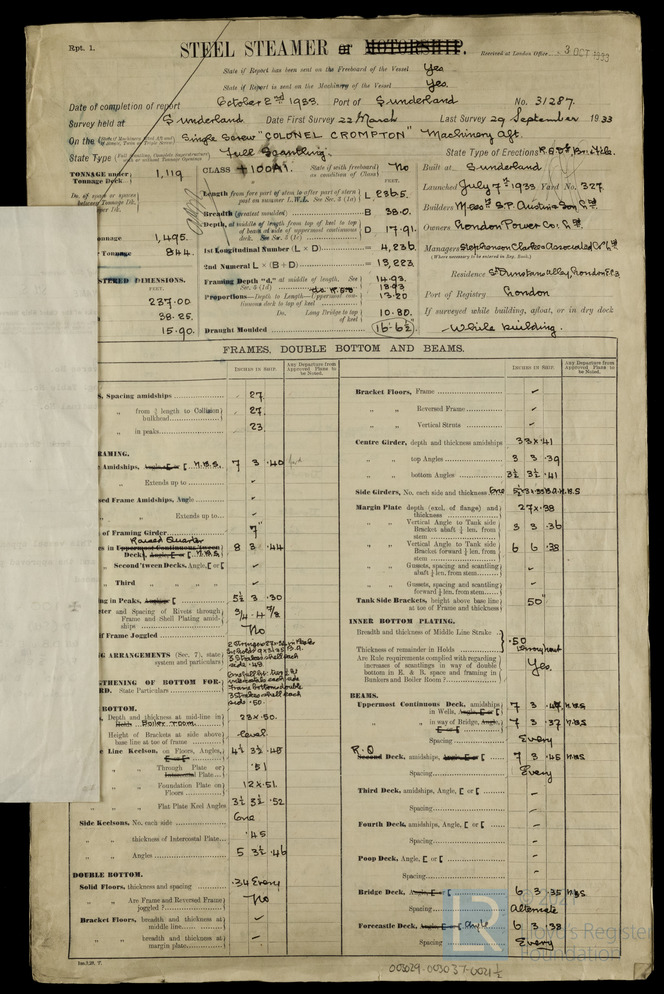 Rpt. 1.
STEEL STEAMER or MOTORSHIP.
Received at London Office 3 OCT 1933
State if Report has been sent on the Freeboard of the Vessel Yes
State if Report is sent on the Machinery of the Vessel Yes.
Date of completion of report October 2nd 1933. Port of Sunderland No. 31287.
Survey held at Sunderland Date First Survey 22 March Last Survey 29 September 1933
On the Single Screw "COLONEL CROMPTON" Machinery Aft.
State Type Full Scantling. State Type of Erections
TONNAGE under Tonnage Deck 1,119
CLASS +100A1. State if with freeboard as condition of Class No
Built at Sunderland
Launched July 7th 1933 Yard No. 327
Builders Messrs S.P. Austin & Son Ltd
Owners London Power Co. Ltd
Managers Stephenson Clarke & Associated Cos Ltd
(Where necessary to be entered in Reg. Book.)
Residence St Dunstans Alley, London EC3
Port of Registry London
If surveyed while building, afloat, or in dry dock
While building.
Length from fore part of stem to after part of stern post on summer L.W.L. See Sec. 2 (1a) L 236.5
Breadth (greatest moulded) B 38.0
D 17.91
1st Longitudinal Number (L × D) 4,236
2nd Numeral L × (B + D) 13,223
Framing Depth "d," at middle of length. See Sec. 3 (1d) 14.93
13.93
Proportions—Depth to Length— 13.20
Do. Long Bridge to top of keel 10.80
Draught Moulded 16'-6½"
Tonnage 1,495
Tonnage 844
REGISTERED DIMENSIONS.
FEET.
237.00
38.25
15.90
FRAMES, DOUBLE BOTTOM AND BEAMS.
INCHES IN SHIP. Any Departure from Approved Plans to be Noted.
Spacing amidships 27
from ⅕ length to Collision bulkhead 27
in peaks 23
FRAMING.
Amidships, Angle, [ or [ N.B.S. 7 3 .40
Extends up to
Reversed Frame Amidships, Angle
Extends up to
of Framing Girder 7"
Raised Quarter
in Uppermost Continuous 'tween Deck, Angle, [ or [ N.B.S. 8 3 .44
Second 'tween Decks, Angle, [ or [
Third
Framing in Peaks, Angle or [ 5½ 3 .30
Diameter and Spacing of Rivets through Frame and Shell Plating amidships ¾ - 4 ⅞
if Frame Joggled No
ARRANGEMENTS (Sec. 7), state system and particulars
STRENGTHENING OF BOTTOM FORWARD. State Particulars
BOTTOM.
Depth and thickness at mid-line in Boiler room. 23 × .50
Height of Brackets at side above base line at toe of frame level
Line Keelson, on Floors, Angles, [ or [ 4½ 3½ .48
Through Plate or Intercostal Plate .51
Foundation Plate on Floors 12 × .51
Flat Plate Keel Angles 3½ 3½ .52
Side Keelsons, No. each side One
thickness of Intercostal Plate .45
Angles 5 3½ .46
DOUBLE BOTTOM.
Solid Floors, thickness and spacing .34 Every
Are Frame and Reversed Frame joggled? No
Bracket Floors, breadth and thickness at middle line
breadth and thickness at margin plate
Bracket Floors, Frame
Reversed Frame
Vertical Struts
Centre Girder, depth and thickness amidships 33 × .41
top Angles 3 3 .39
bottom Angles 3½ 3½ .41
Side Girders, No. each side and thickness One
Margin Plate depth (excl. of flange) and thickness 27 × .38
Vertical Angle to Tank side Bracket abaft ¼ len. from stem 3 3 .36
Vertical Angle to Tank side Bracket forward ¼ len. from stem 6 6 .38
Gussets, spacing and scantling abaft ¼ len. from stem
Gussets, spacing and scantling forward ¼ len. from stem
Tank Side Brackets, height above base line at toe of Frame and thickness 50"
INNER BOTTOM PLATING.
Breadth and thickness of Middle Line Strake .50
Thickness of remainder in Holds throughout
Are Rule requirements complied with regarding increases of scantlings in way of double bottom in E. & B. space and framing in Bunkers and Boiler Room? Yes.
BEAMS.
Uppermost Continuous Deck, amidships in Wells, Angle, [ or [ 7 3 .47 N.B.S
in way of Bridge, Angle, [ or [ 7 3 .37 N.B.S
Spacing Every
R.Q Second Deck, amidships, Angle, [ or [ 7 3 .45 N.B.S
Spacing Every
Third Deck, amidships, Angle, [ or [
Spacing
Fourth Deck, amidships, Angle, [ or [
Spacing
Poop Deck, Angle, [ or [
Spacing
Bridge Deck, Angle, [ or [ 6 3 .35 N.B.S
Spacing Alternate
Forecastle Deck, Angle, [ or [ Angle 6 3 .38
Spacing Every
003029-003037-0021½
© 2021
LR
Lloyd's Register
Foundation